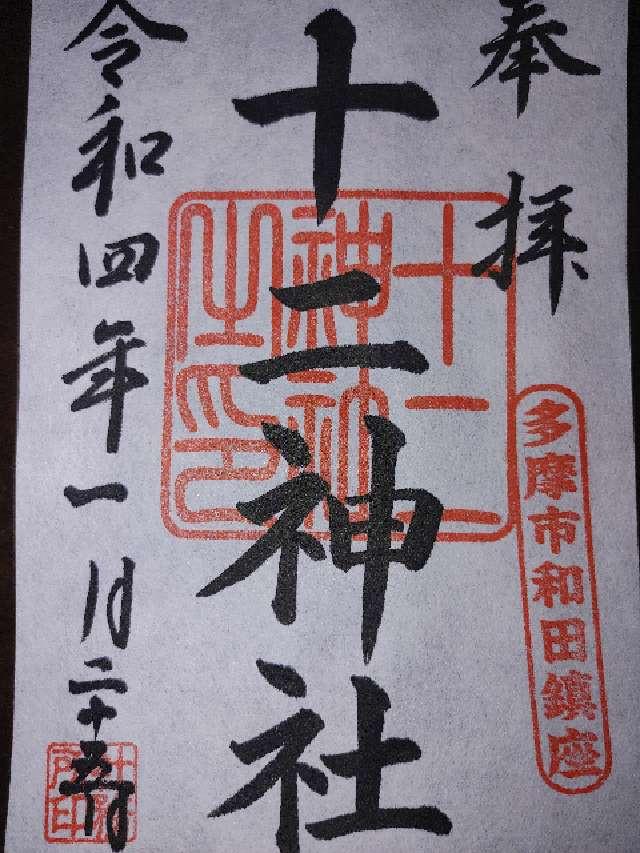 奉拝
多摩市和田鎮座
十二神社
十二神社之印
令和四年一月二十五日